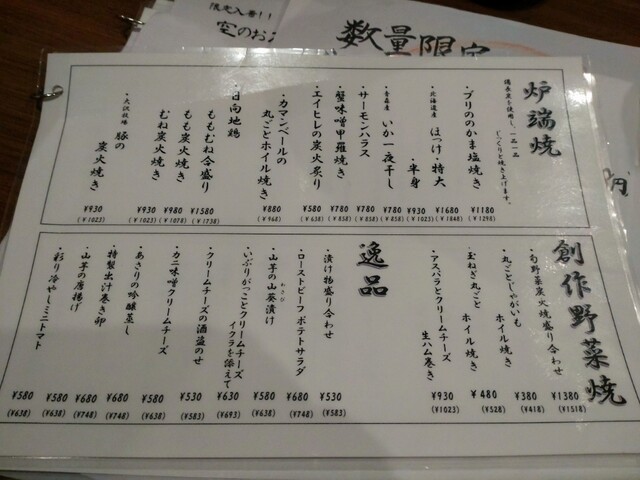 数量限定
炉端焼
備長炭を使用し、一品一品
じっくりと焼き上げます。
・ブリののかま塩焼き ¥1180 (¥1298)
・北海道産 ほっけ・特大 ¥1680 (¥1848)
・半身 ¥930 (¥1023)
・青森産 いか一夜干し ¥780 (¥858)
・サーモンハラス ¥780 (¥858)
・蟹味噌甲羅焼き ¥780 (¥858)
・エイヒレの炭火炙り ¥580 (¥638)
・カマンベールの
丸ごとホイル焼き ¥880 (¥968)
・日向地鶏
ももむね合盛り ¥1580 (¥1738)
もも炭火焼き ¥980 (¥1078)
むね炭火焼き ¥930 (¥1023)
・大沢牧場 豚の
炭火焼き ¥930 (¥1023)
創作野菜焼
・旬野菜炭火焼盛り合わせ ¥1380 (¥1518)
・丸ごとじゃがいも
ホイル焼き ¥380 (¥418)
・玉ねぎ丸ごと
ホイル焼き ¥480 (¥528)
・アスパラとクリームチーズ
生ハム巻き ¥930 (¥1023)
逸品
・漬け物盛り合わせ ¥530 (¥583)
・ローストビーフポテトサラダ ¥680 (¥748)
・山芋の山葵漬け ¥580 (¥638)
わさび
・いぶりがっことクリームチーズ
イクラを添えて ¥630 (¥693)
・クリームチーズの酒盗のせ ¥530 (¥583)
・カニ味噌クリームチーズ ¥580 (¥638)
・あさりの吟醸蒸し ¥680 (¥748)
・特製出汁巻き卵 ¥680 (¥748)
・山芋の唐揚げ ¥580 (¥638)
・彩り冷やしミニトマト ¥580 (¥638)